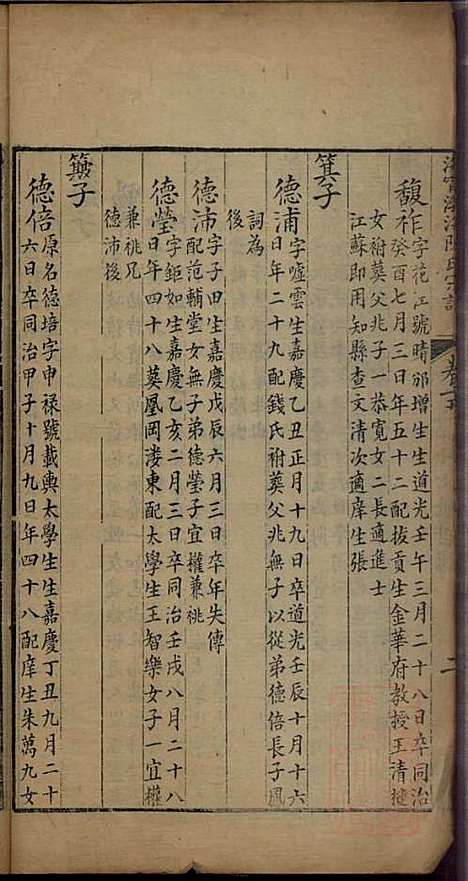 馥祚字花江號晴邠增生生道光壬午三月二十八日卒同治
癸酉七月三日年五十二配拔貢生金華府教授王清槤
女祔葬父兆子一恭寬女二長適進士
江蘇即用知縣查文清次適庠生張
箕子
德浦字噓雲生嘉慶乙丑正月十九日卒道光壬辰十月十六
日年二十九配錢氏祔葬父兆無子以從弟德倍長子鳳
詞為
後
德沛字子田生嘉慶戊辰六月三日卒年失傳
配范輔堂女無子弟德瑩子宜權兼祧
德瑩字鉅如生嘉慶乙亥二月三日卒同治壬戌八月二十八
日年四十八葬凰岡漊東配太學生王智樂女子一宜權
兼祧兄
德沛後
簸子
德倍原名德培字申祿號載輿太學生生嘉慶丁丑九月二十
六日卒同治甲子十月九日年四十八配庠生朱萬九女